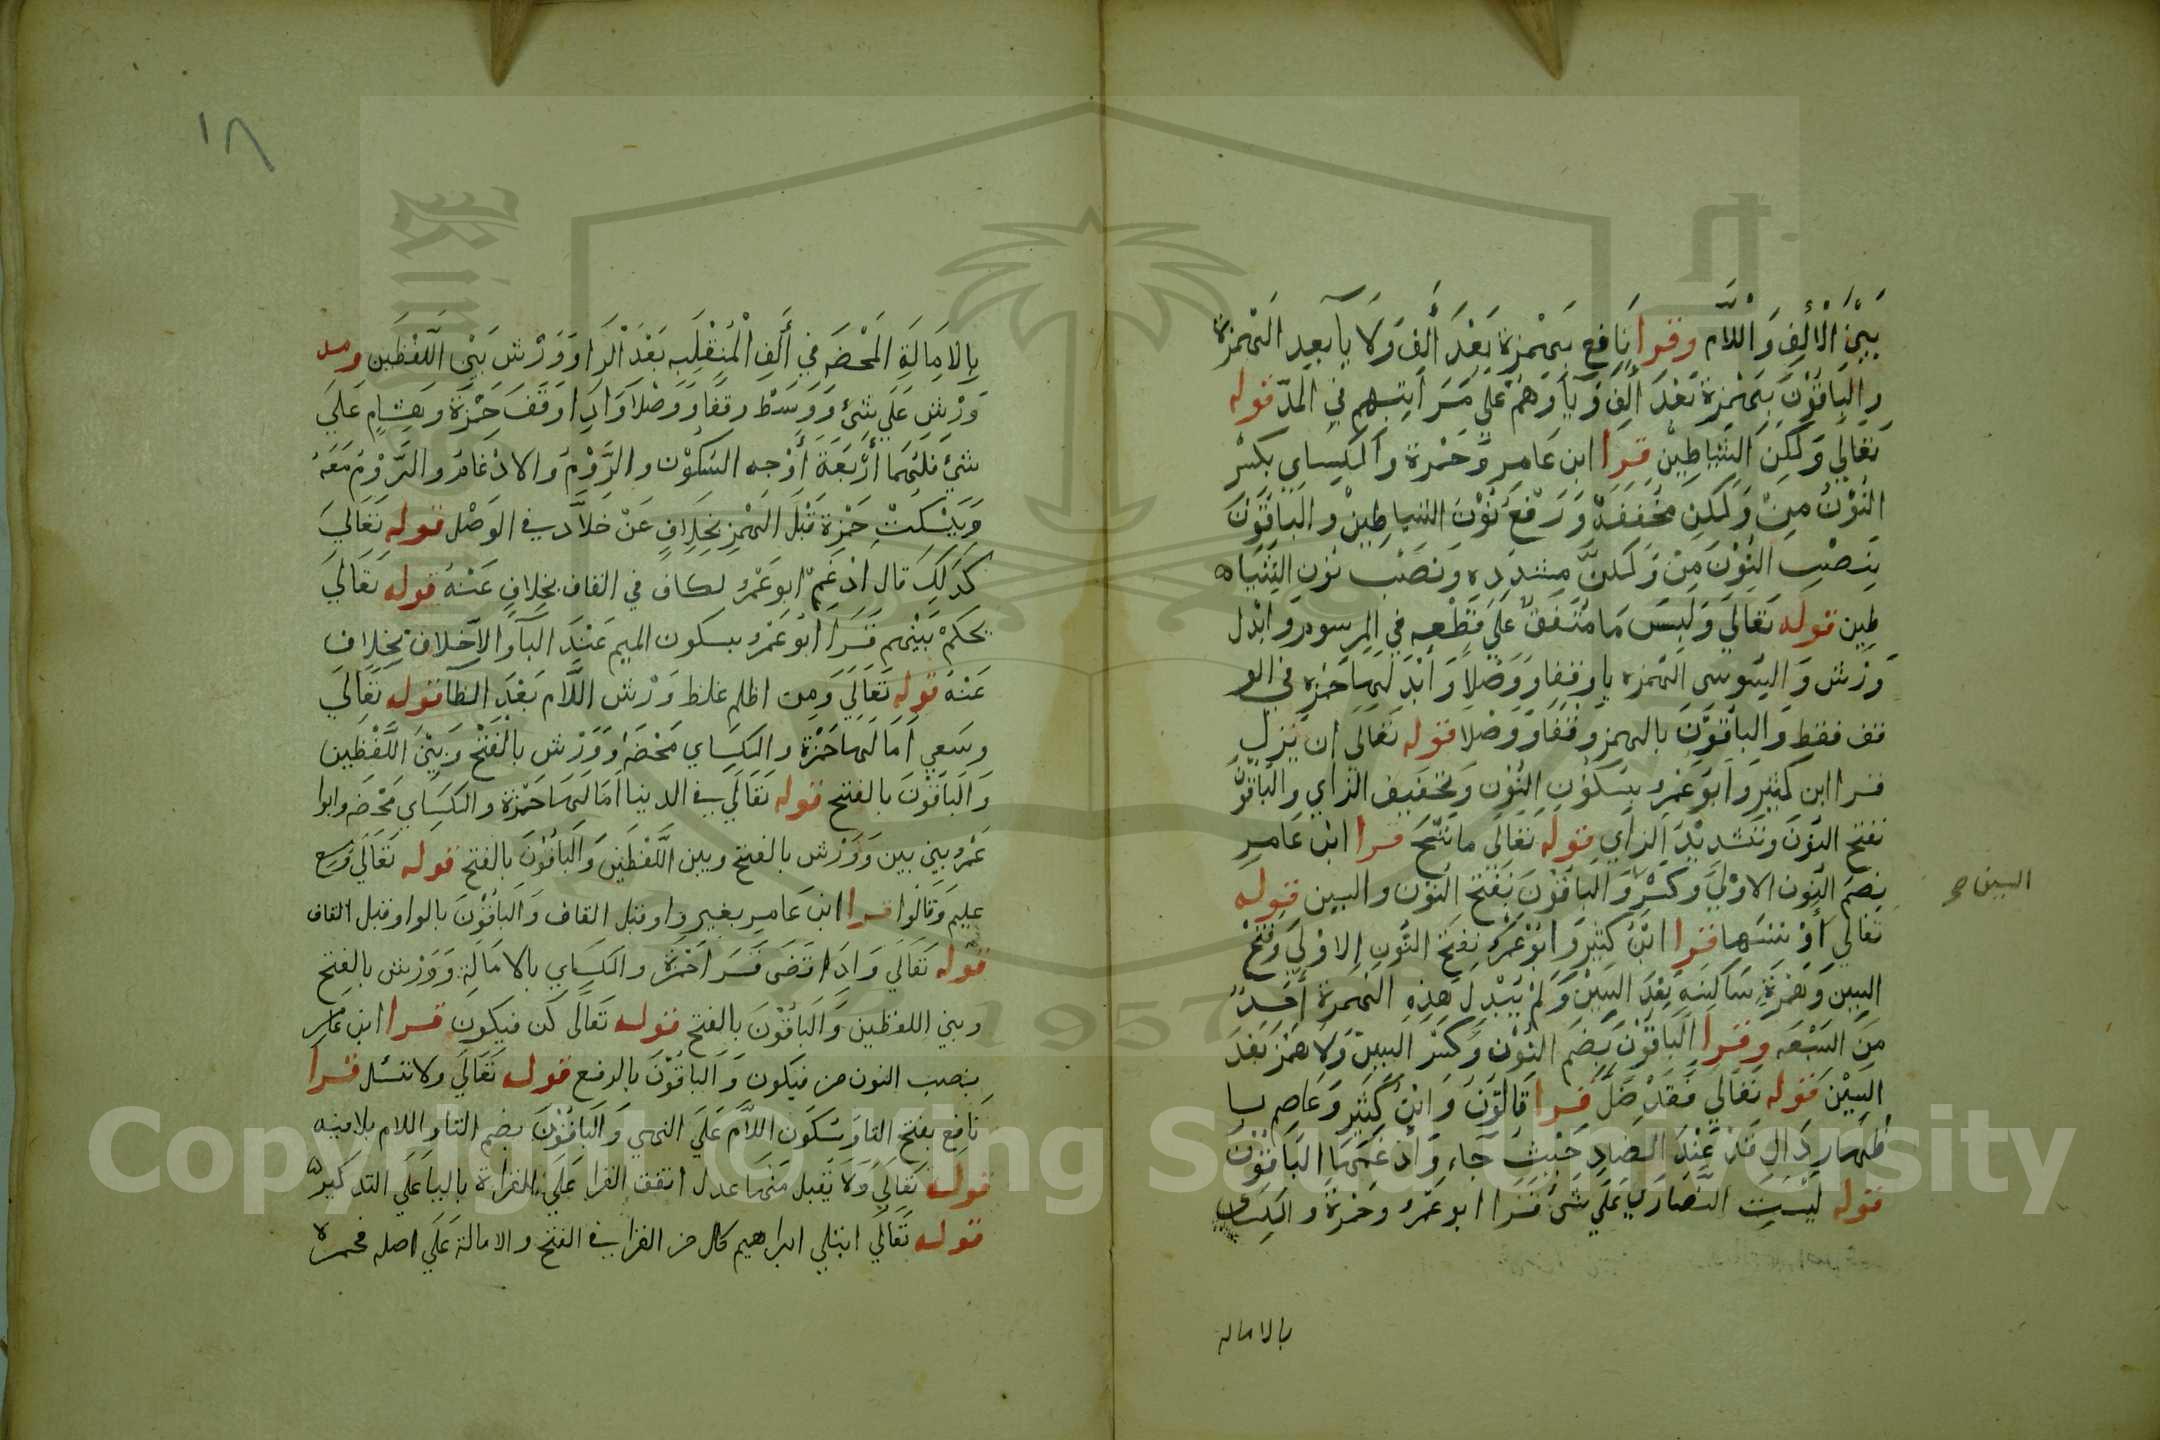 بَيْنَ الْأَلِفِ وَاللَّام وقرا نَافِع بِهَمزة بَعْدَ أَلِف وَلَا يا بعد الهمزة
وَالبَاقُوْنَ بِهَمْزة بَعْدَ أَلِف وَيَا وَهُمْ عَلي مَرَاتبهم في المدّ قوله
تَعَالي وَلَكِن الشياطِيْن قرا ابن عَامر وَحَمْزة وَالكِسَاي بكسْرِ
النُوْن مِنْ وَلَكِن مخففة وَرَفْع نُوْن الشياطِيْن وَالبَاقُوْنَ
بِنَصْب النُوْن مِنْ وَلَكنَّ مشدده وَنَصْب نون الشَيَا
طِين قوله تَعَالي وَلَبِئْسَ مَا متفَق عَلَي قَطْعه في المرسوم وَابْدل
وَرْش وَالسُوسي الهمزه يا وقفا وَوَصْلا وَابْدَلَهَا حَمْزه في الو
قف فقط وَالبَاقُوْنَ بالهمز وقفا وَوَصْلا قوله تَعَالي ان ينزل
قرا ابن كَثير وَابو عَمْرو بسكون النُون وَتخفيف الزاي وَالبَاقُوْن
بفتح النُوْن وتشديْد الزاي قوله تَعَالي ما ننسخ قرا ابن عَامر
بضم النون الاوْلي وَكسْر وَالبَاقُوْنَ بفتح النُوْن والسين قوله
تَعَالي أَوْ ننسها قرا ابْن كثير وَابو عَمْرو بفتح النُون الاوْلي وَفتْح
السِين وَهمْزة سَاكنة بَعْد السِيْن وَلمْ يُبْدل هَذِه الهمزة أَحَد
مِنَ السَبْعَه وقرا البَاقُوْنَ بِضَم النُوْن وَكسْر السِيْن وَلا همْز بَعْدَ
السِيْن قوله تَعَالي فَقَدْ ضَلَّ قرا قَالُوْنَ وَابْن كَثير وَعَاصم با
ظهار دَال قَدْ عِنْدَ الضَادِ حَيْثُ جَاء وَادْغَمَهَا البَاقُوْنَ
قوله ليْسَتِ النَّصَارَي عَلَي شَئ قَرَا ابو عَمْرو وَحمْزة والكسَاي
السين صح
بالاماله
١٨
بِالاِمَالَةِ المحْضَه فِي أَلِف الْمُنقَلِبَه بَعْدَ الرَا وَوَرْش بَيْن اللَّفْظَين ومد
وَرْش عَلَي شئ وَوَسَط وقفا وَوَصْلا وَاذا وَقَفَ حَمْزة وَهشام عَلَي
شئ فلَهُمَا أَرْبَعَة أَوْجه السكُوْن والرَّوْم والادْغام والرَّوْم مَعَهُ
وَيَسْكتْ حَمْزة قَبْلَ الهَمْز بخِلَافٍ عَنْ خلَّاد في الوَصْل قوله تَعَالي
كَذَلِكَ قال ادْغَمَ ابو عَمْرو لكاف في القاف بخِلاف عَنْهُ قوله تَعَالي
يحكمْ بَيْنهم قَرَا ابو عَمْرو بسكون الميم عنْدَ البَا والاخلاف بخِلاف
عَنْهُ قوله تَعَالي وَمن اظلم غلظ وَرْش اللَّام بَعْدَ الظا قوله تَعَالي
وسَعي اَمَالها حَمْزة والكسَاي مَحْضَة وَوَرْش بالْفَتْح وَبَيْنَ اللَّفْظِين
وَالبَاقُوْنَ بالفتح قوله تَعَالي في الدنيا اَمَالَهَا حَمْزة والكسَاي مَحْضه وابوا
عَمْرو بين بين وَوَرْش بالفتح وبين اللَّفْظَين وَالبَاقُوْنَ بالفتح قوله تَعَالي وَسع
عليم وَقالوا قرا ابن عَامر بغير واو قبل القاف وَالبَاقُوْنَ بالواو قبل القاف
قوله تَعَالي وَاذا قضَى قَرَا حَمْزة والكسَاي بالامَالَة وَوَرْش بالفتح
وبين اللفظين وَالبَاقُوْنَ بالفتح قوله تَعَالَي كن فيكون قرا ابن عَامر
بنصب النون من فيكون وَالبَاقُوْنَ بالرفع قوله تَعَالَي ولا تسئل قرا
نَافِع بفتح التا وَسكون اللَّام عَلَي النهي وَالبَاقُوْنَ بضم التا واللام بلا فيه
قوله تَعَالَي وَلا يقبل منها عدل اتفق القرا عَلَي القراة باليا عَلَي التذكير
قوله تَعَالَي ابتلي ابراهيم كل من القرا في الفتح والامالة عَلَي اصله فحمزه
Copyright © King Saud University
1957